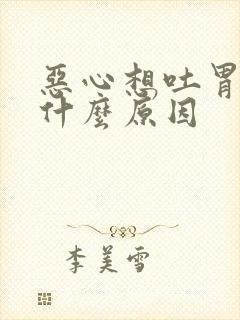 惡心想吐胃
什麼原因
李美雪